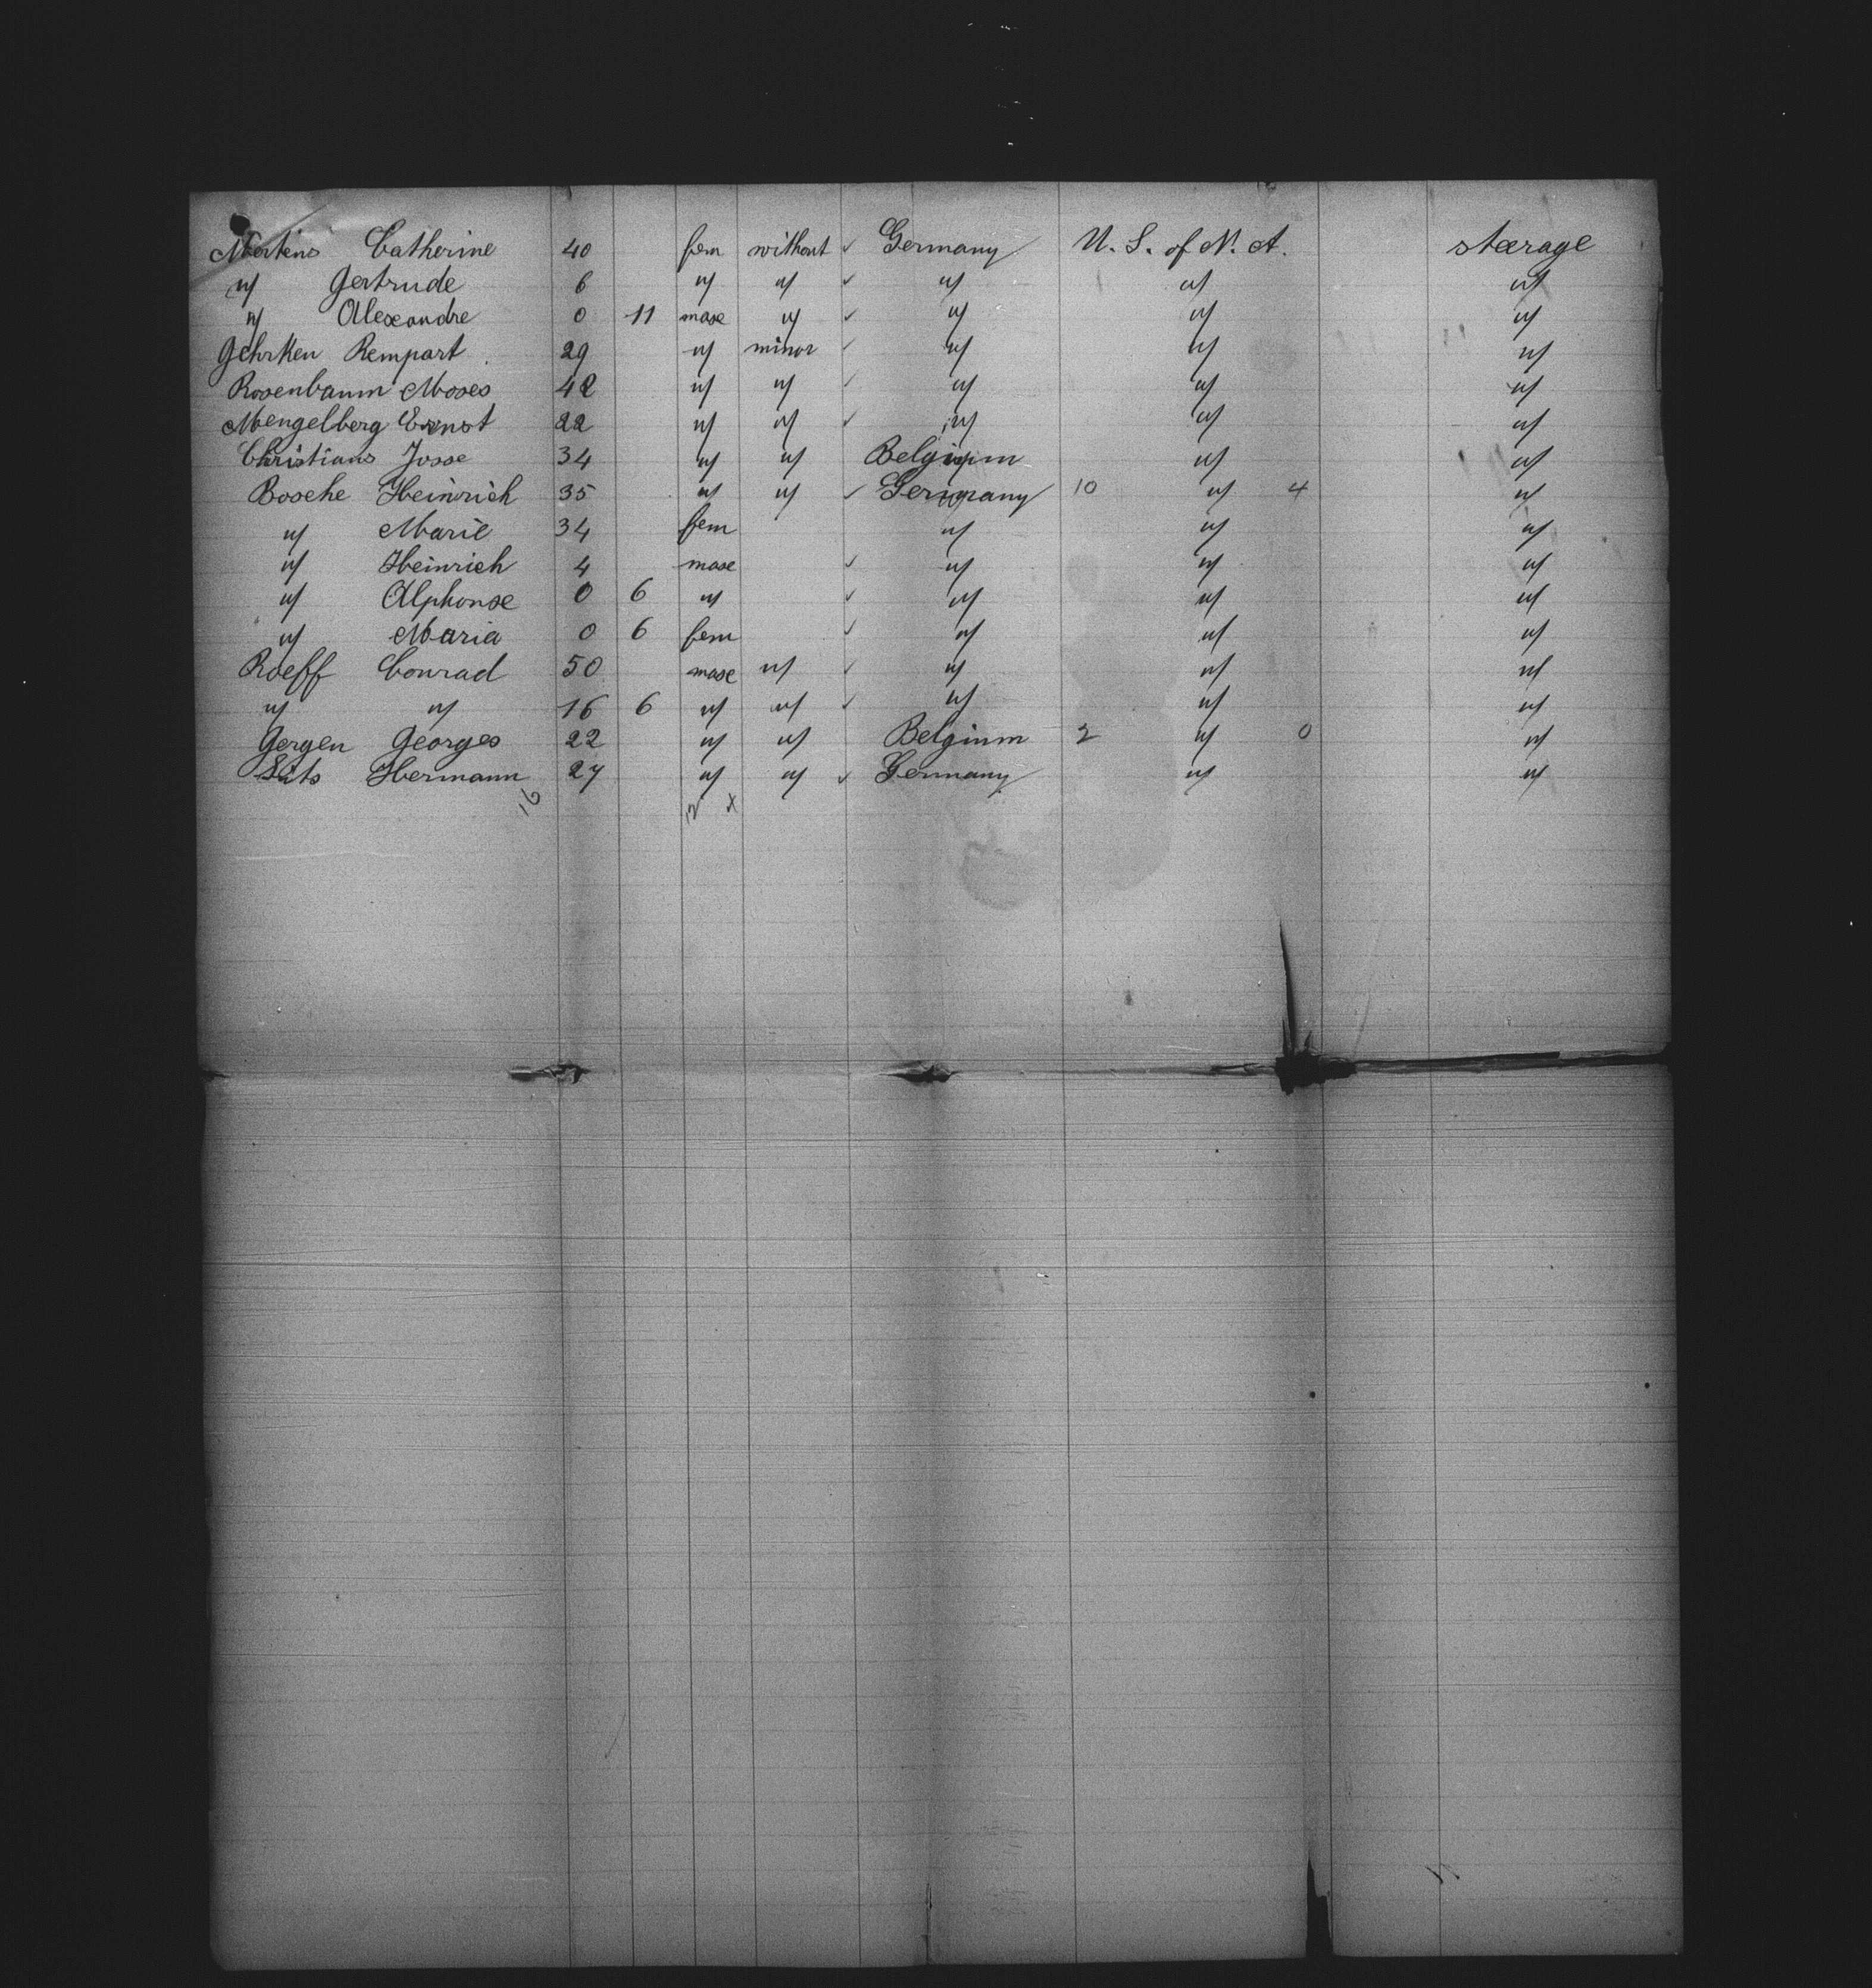 Mertens Catherine 40 fem without ✓ Germany U. S. of N. A. steerage
" Gertrude 6 " " ✓ " " "
" Alexandre 0 11 masc " ✓ " " "
Gehrken Rempart 29 " minor ✓ " " "
Rosenbaum Moses 42 " " ✓ " " "
Mengelberg Ernst 22 " " ✓ " " "
Christians Josse 34 " " Belgium " "
Bosche Heinrich 35 " " ✓ Germany 10 " 4 "
" Marie 34 fem " " "
" Heinrich 4 masc ✓ " " "
" Alphonse 0 6 " ✓ " " "
" Maria 0 6 fem ✓ " " "
Roeff Conrad 50 masc " ✓ " " "
" " 16 6 " " ✓ " " "
Gergen Georges 22 " " Belgium 2 " 0 "
Hermann 27 " " ✓ Germany " "
16 12 x